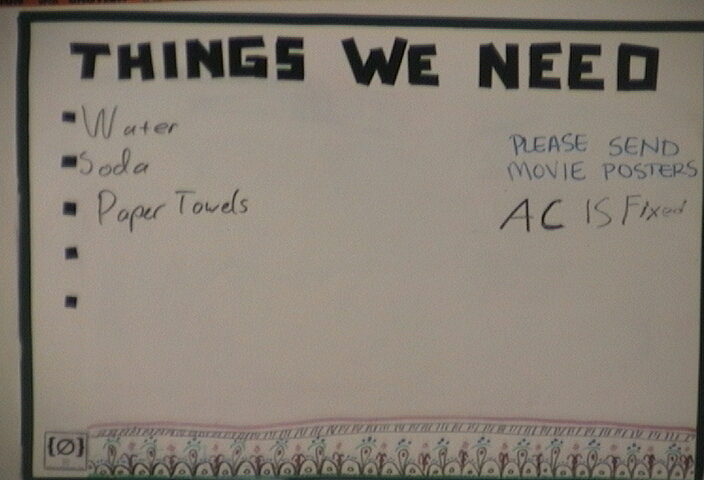 THINGS WE NEED
Water
Soda
Paper Towels
PLEASE SEND
MOVIE POSTERS
AC IS Fixed
{Ø}